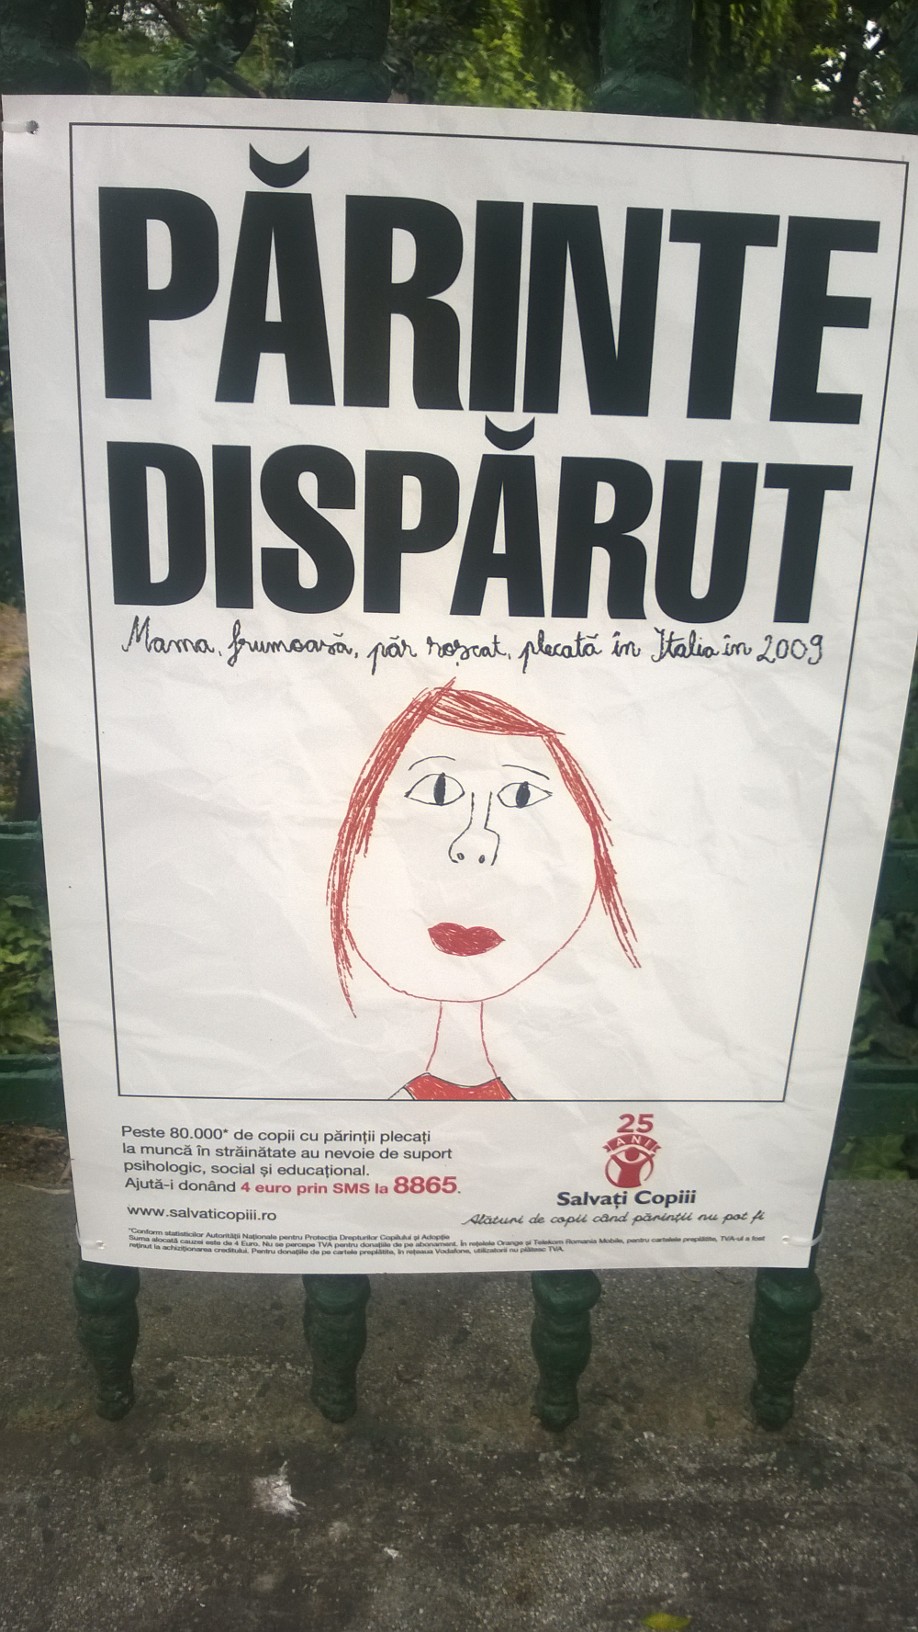 PĂRINTE
DISPĂRUT
Mama, frumoasă, păr roșcat, plecată în Italia în 2009
Peste 80.000* de copii cu părinții plecați
la muncă în străinătate au nevoie de suport
psihologic, social și educațional.
Ajută-i donând 4 euro prin SMS la 8865.
www.salvaticopiii.ro
25
ANI
Salvați Copiii
Alături de copii când părinții nu pot fi
*Conform statisticilor Autorității Naționale pentru Protecția Drepturilor Copilului și Adopție
Suma alocată cauzei este de 4 Euro. Nu se percepe TVA pentru donațiile de pe abonament. În rețelele Orange și Telekom Romania Mobile, pentru cartelele preplătite, TVA-ul a fost
reținut la achiziționarea creditului. Pentru donațiile de pe cartele preplătite, în rețeaua Vodafone, utilizatorii nu plătesc TVA.